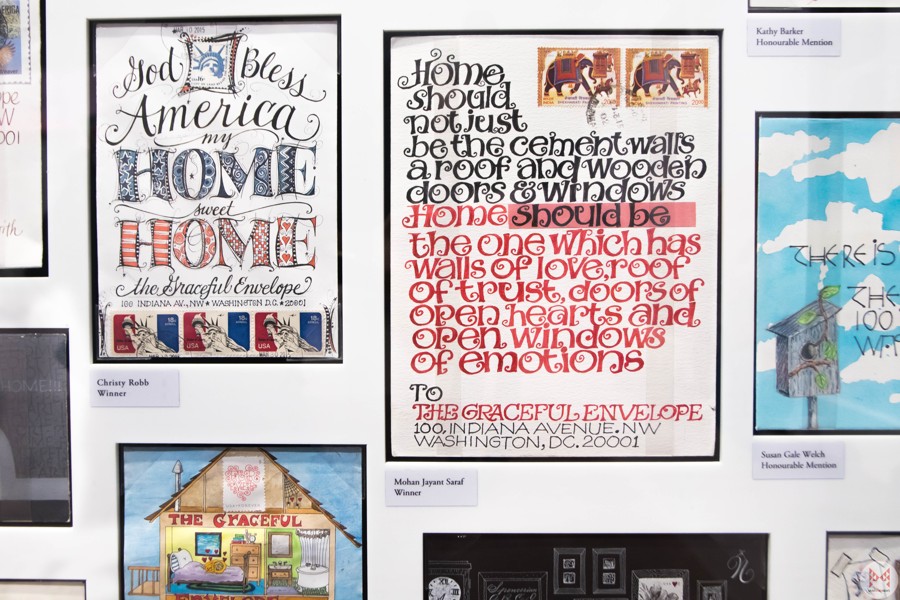 God Bless
America
my
HOME
sweet
HOME
the Graceful Envelope
100 INDIANA AV., NW ★ WASHINGTON D.C. ★ 20001
USA
USA
USA
Christy Robb
Winner
Home,
should
not just
be the cement walls
a roof and wooden
doors & windows
Home should be
the one which has
walls of love, roof
of trust, doors of
open hearts and
open windows
of emotions
TO
THE GRACEFUL ENVELOPE
100, INDIANA AVENUE. NW
WASHINGTON, DC. 20001
Mohan Jayant Saraf
Winner
Kathy Barker
Honourable Mention
THERE IS
THE
100
Susan Gale Welch
Honourable Mention
THE GRACEFUL
ENVELOPE